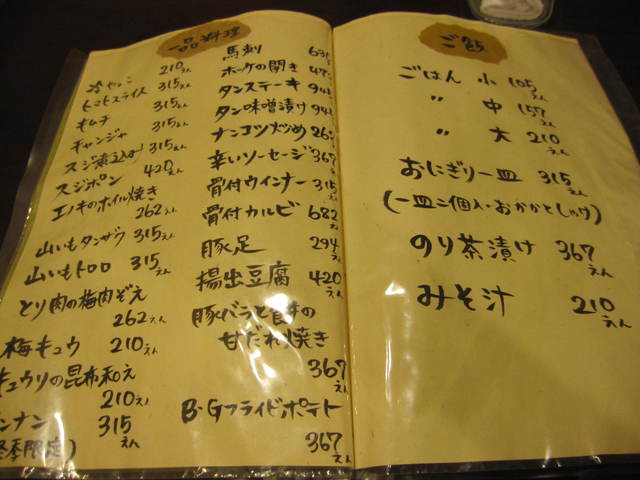 一品料理
冷やっこ 210えん
トマトスライス 315えん
キムチ 315えん
チャンジャ 315えん
スジ煮込み 315えん
スジポン 420えん
エノキのホイル焼き
262えん
山いもタンザク 315えん
山いもトロロ 315えん
とり肉の梅肉ぞえ
262えん
梅キュウ 210えん
キュウリの昆布和え
210えん
ンナン 315えん
季限定)
馬刺 63
ホッケの開き 47
タンステーキ 94
タン味噌漬け 94
ナンコツ炒め 262
辛いソーセージ 367
骨付ウインナー 315えん
骨付カルビ 682えん
豚足 294えん
揚出豆腐 420えん
豚バラと
甘だれ焼き
367えん
B・Gフライドポテト
367えん
ご飯
ごはん 小 105えん
〃 中 157えん
〃 大 210えん
おにぎり一皿 315えん
(一皿二個入・おかかとしゃけ)
のり茶漬け 367えん
みそ汁 210えん